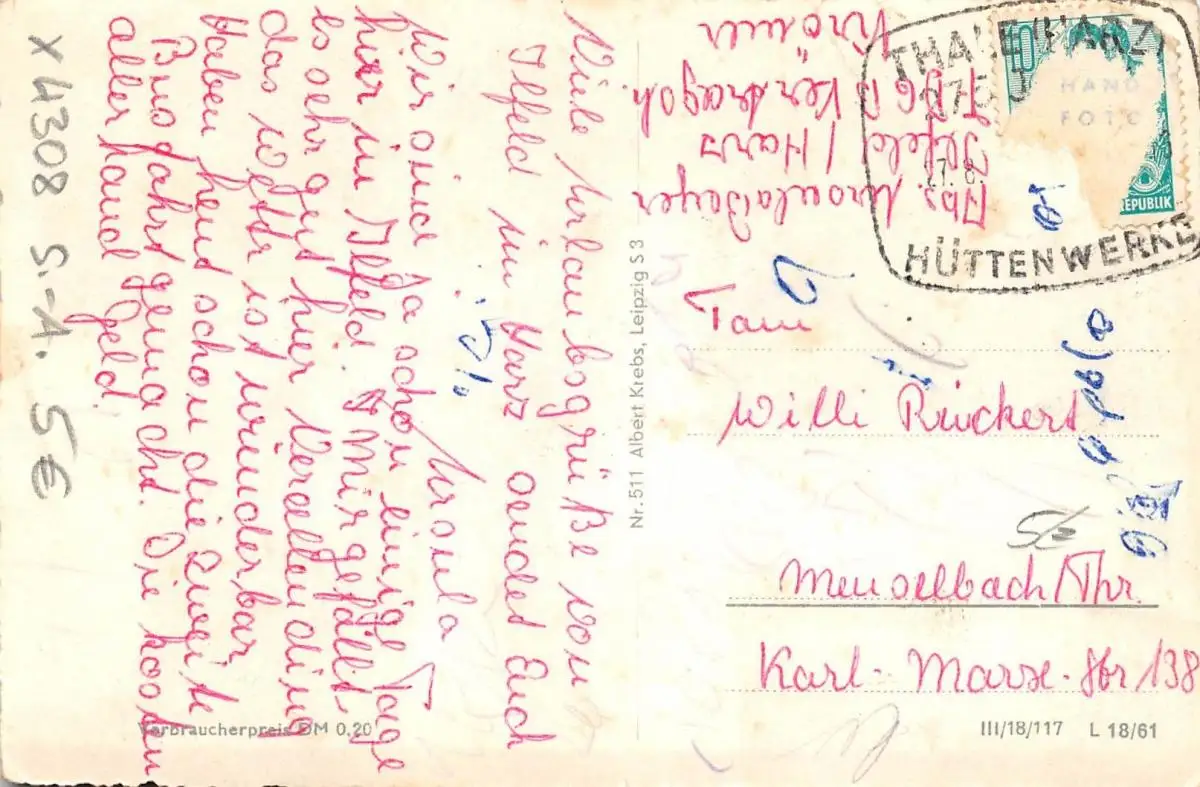 Viele Urlaubsgrüße von
Ilfeld im Harz sendet Euch
Ursula
Wir sind ja schon einige Tage
hier in Ilfeld. Mir gefällt
es sehr gut hier
das Wetter ist wunderbar
Haben heut schon die zweite
Busfahrt gemacht. Die kosten
allerhand Geld.
X 4308 S.-A. 5€
Abs. Ursula
Ilfeld / Harz
THALE/HARZ
HÜTTENWERKE
10
REPUBLIK
HAND
FOTO
Nr. 511 Albert Krebs, Leipzig S 3
Fam
Willi Rückert
Meuselbach/Thr.
Karl-Marx-Str 138
Verbraucherpreis DM 0,20
III/18/117 L 18/61